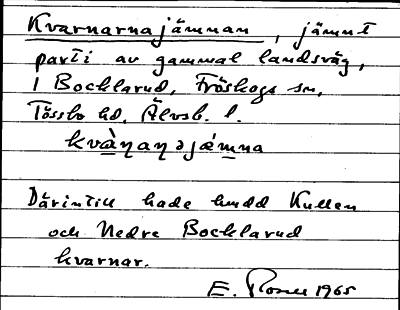 Kvarnarnajämnan, jämnt
parti av gammal landsväg,
i Bocklarud, Fröskogs sn,
Tössbo hd, Älvsb. l.
Därintill hade hudd Kullen
och Nedre Bocklarud
kvarnar.
E. 1965